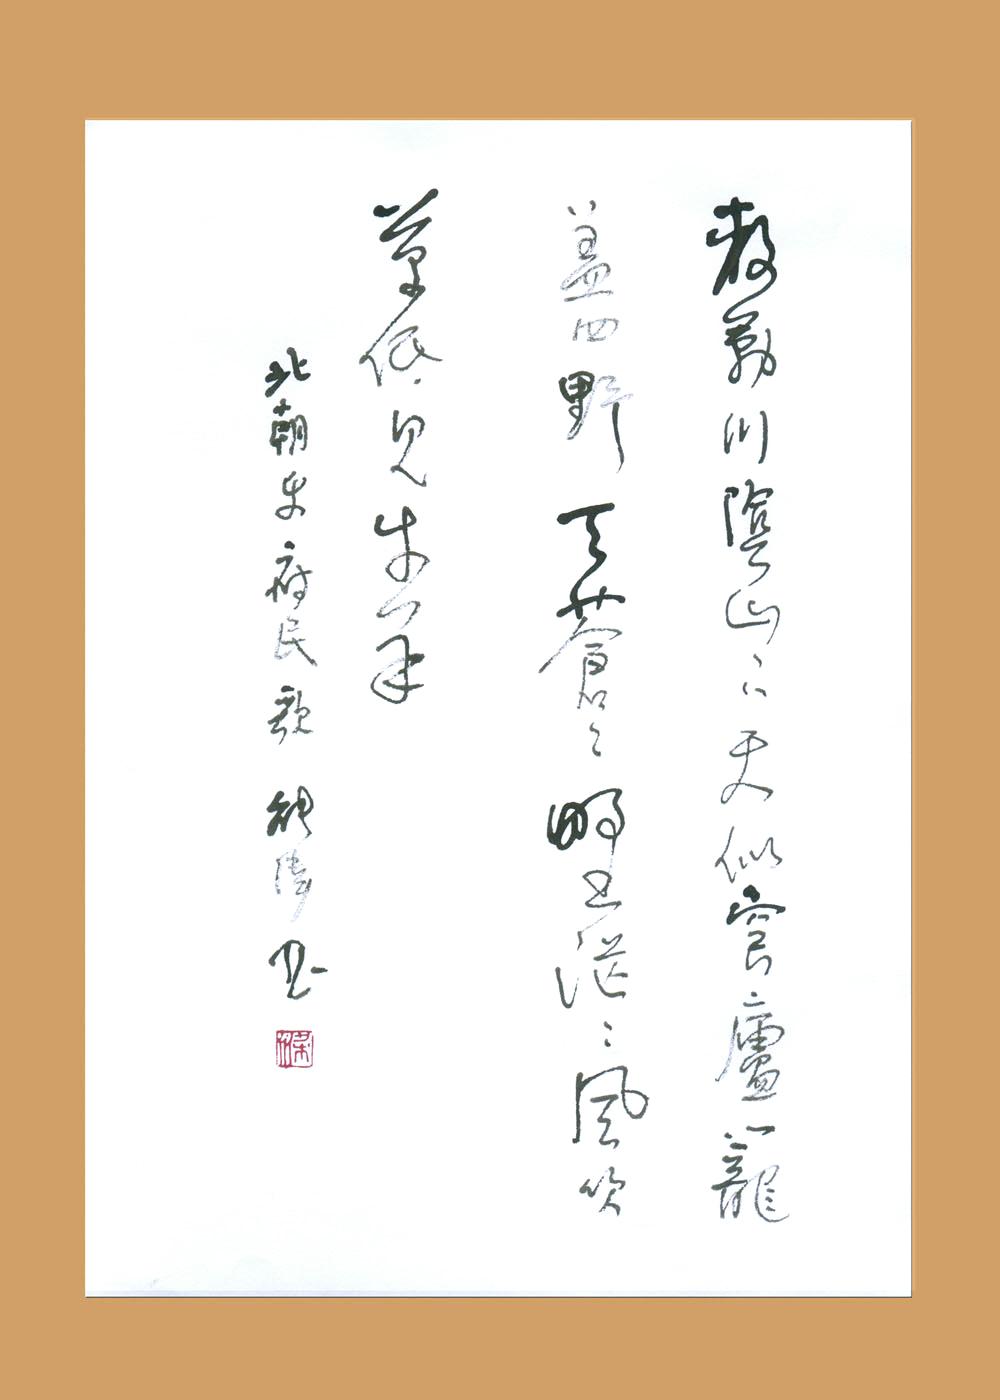 敕勒川陰山下天似穹廬籠
盖四野天蒼〻野茫〻風吹
草低見牛羊
北朝乐府民歌 书